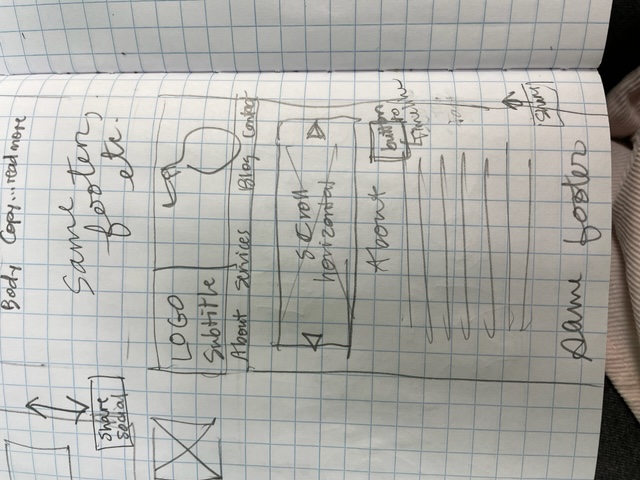 Body Copy...read more
Same
footer,
etc.
Share
Social
LOGO
Subtitle
About Services Blog Contact
Scroll
horizontal
About
button
to
Timeline
Share
Same footer